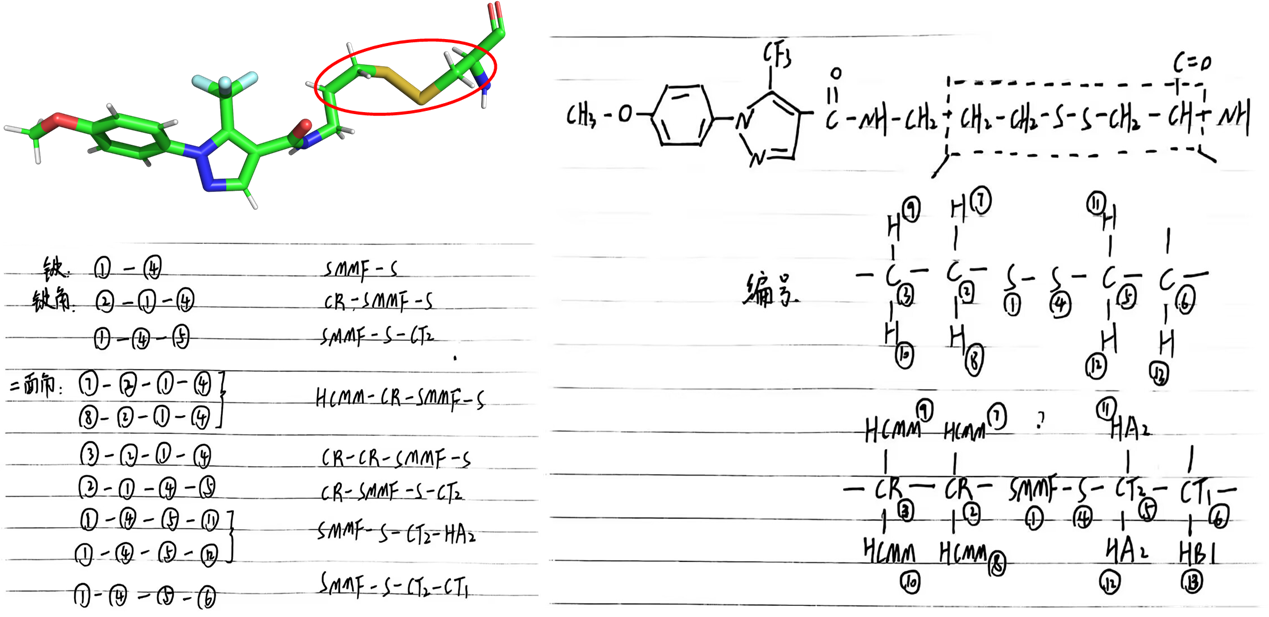 键: ① - ④ SMMF-S
键角: ② - ① - ④ CR-SMMF-S
① - ④ - ⑤ SMMF-S-CT2
二面角: ⑦ - ② - ① - ④
⑧ - ② - ① - ④
HCMM-CR-SMMF-S
③ - ② - ① - ④ CR-CR-SMMF-S
② - ① - ④ - ⑤ CR-SMMF-S-CT2
① - ④ - ⑤ - ⑪
① - ④ - ⑤ - ⑫
SMMF-S-CT2-HA2
① - ④ - ⑤ - ⑥ SMMF-S-CT2-CT1
C=O
CF3
O
CH3-O- N C-NH-CH2 CH2-CH2-S-S-CH2-CH NH
N
H⑨ H⑦ ⑪H
编号. -C-C-S-S-C-C-
③ ② ① ④ ⑤ ⑥
H H H H
⑩ ⑧ ⑫ ⑬
HCMM⑨ HCMM⑦ ? ⑪HA2
-CR-CR-SMMF-S-CT2-CT1-
③ ② ① ④ ⑤ ⑥
HCMM HCMM⑧ HA2 HB1
⑩ ⑫ ⑬